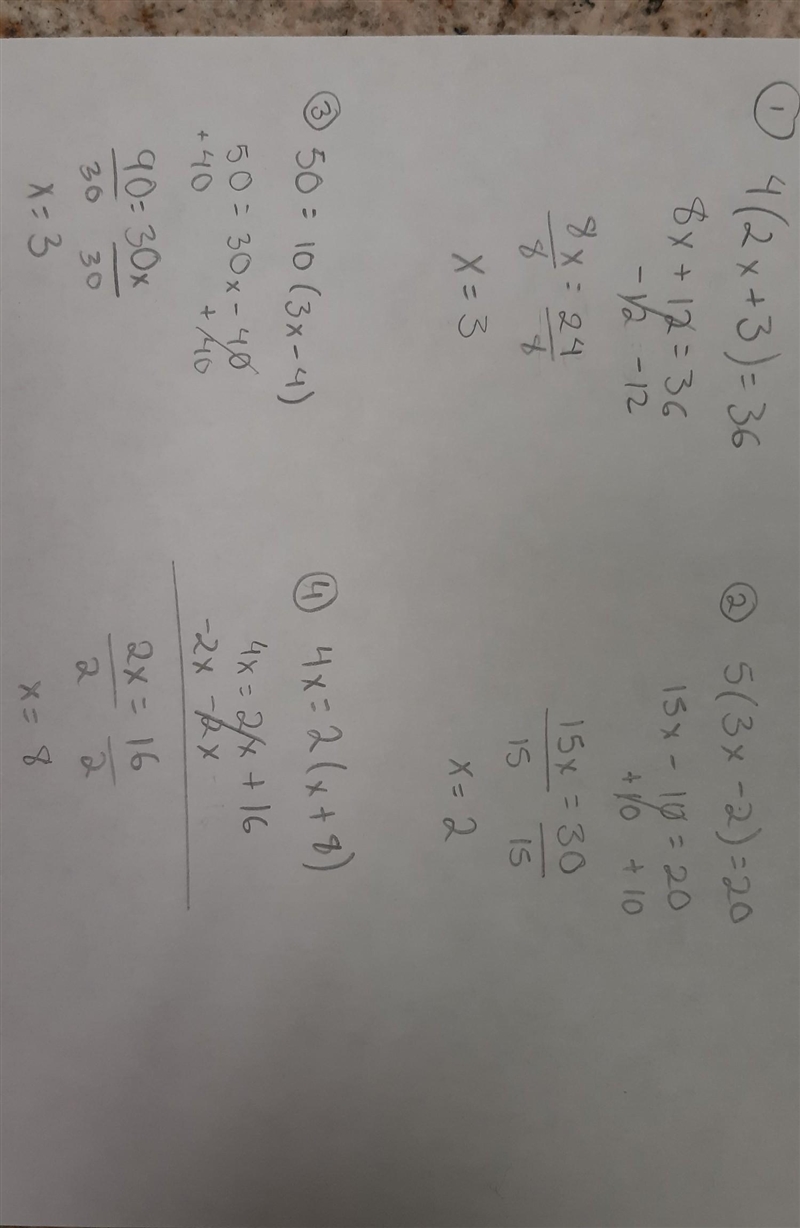 ① 4(2x+3)=36
8x+12=36
-12 -12
8x=24
8 8
x=3
② 5(3x-2)=20
15x-10=20
+10 +10
15x=30
15 15
x=2
③ 50=10(3x-4)
50=30x-40
+40 +40
90=30x
30 30
x=3
④ 4x=2(x+8)
4x=2x+16
-2x -2x
2x=16
2 2
x=8